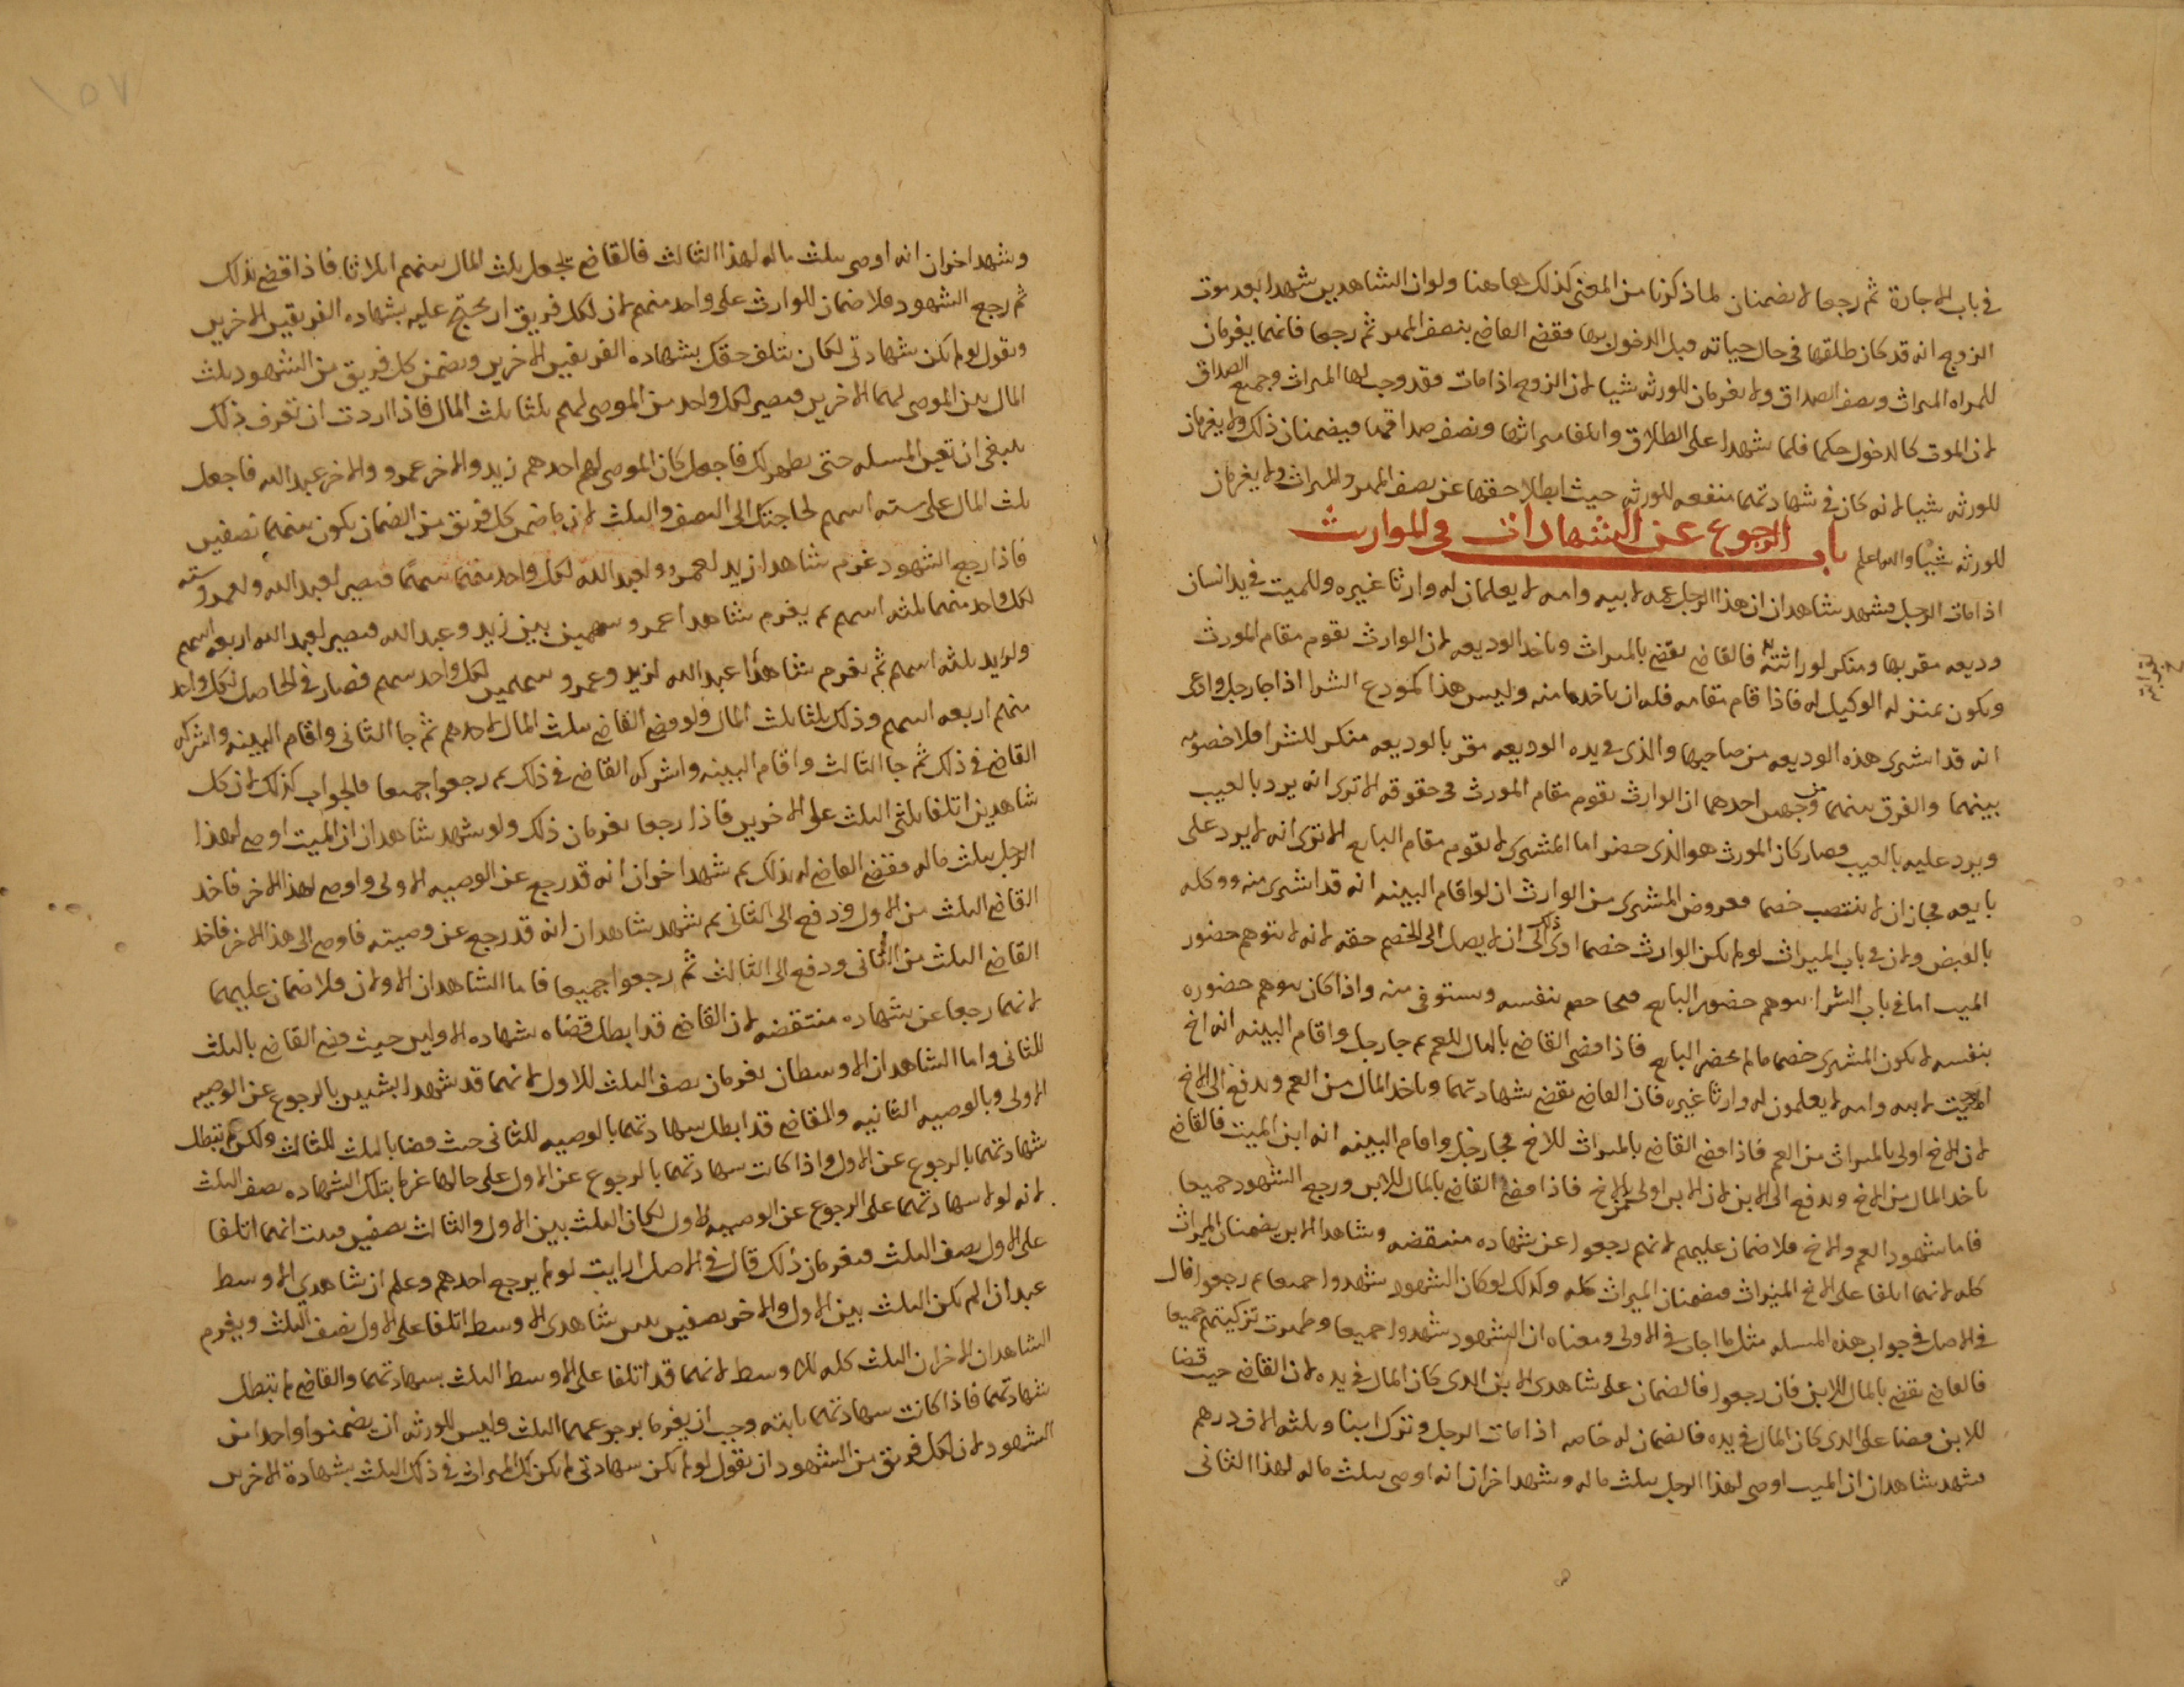 في باب الاجارة ثم رجعا لا يضمنان لما ذكرنا من المعنى كذلك هاهنا ولو ان الشاهدين شهدا بعد موت
الزوج انه قد كان طلقها في حال حياته قبل الدخول بها فقضى القاضي بنصف المهر ثم رجعا فانهما يغرمان
للمراه الميراث ونصف الصداق ولا يغرمان للورثه شيا لان الزوج اذا مات فقد وجب لها الميراث وجميع الصداق
لان الموت كالدخول حكما فلما شهدا على الطلاق واتلفا ميراثها ونصف صداقها فيضمنان ذلك ولا يغرمان
للورثه شيا لانه كان في شهادتهما منفعه للورثه حيث ابطلا حقها عن نصف المهر والميراث ولا يغرمان
للورثه شيا والله اعلم باب الرجوع عن الشهادات في المواريث
اذا مات الرجل فشهد شاهدان ان هذا الرجل عمه لابيه وامه لا يعلمان له وارثا غيره وللميت في يد انسان
وديعه مقر بها ومنكر لوراثته فالقاضي يقضي بالميراث وياخذ الوديعه لان الوارث يقوم مقام المورث
ويكون بمنزله الوكيل له فاذا قام مقامه فله ان ياخذها منه وليس هذا كمودع الشرا اذا جا رجل وادعى
انه قد اشترى هذه الوديعه من صاحبها والذي في يده الوديعه مقر بالوديعه منكر للشرا فلا خصومه
بينهما والفرق بينهما من وجهين احدهما ان الوارث يقوم مقام المورث في حقوقه الا ترى انه يرد بالعيب
ويرد عليه بالعيب فصار كان المورث هو الذي حضر اما المشتري لا يقوم مقام البايع الا ترى انه لا يرد على
بايعه فجاز ان لا ينتصب خصما فعروض المشتري من الوارث ان لو اقام البينه انه قد اشترى منه ووكله
بالقبض ولان في باب الميراث لو لم يكن الوارث خصما ادى ذلك الى ان لا يصل الى الخصم حقه لانه لا يتوهم حضور
الميت اما في باب الشرا يتوهم حضور البايع فيخاصم بنفسه ويستوفي منه واذا كان يتوهم حضوره
بنفسه لا يكون المشتري خصما ما لم يحضر البايع فاذا قضى القاضي بالمال للعم ثم جا رجل واقام البينه انه اخ
الميت لابيه وامه لا يعلمون له وارثا غيره فان القاضي يقضي بشهادتهما وياخذ المال من العم ويدفع الى الاخ
لان الاخ اولى بالميراث من العم فاذا قضى القاضي بالميراث للاخ فجا رجل واقام البينه انه ابن الميت فالقاضي
ياخذ المال من الاخ ويدفع الى الابن لان الابن اولى من الاخ فاذا قضى القاضي بالمال للابن ورجع الشهود جميعا
فاما شهود العم والاخ فلا ضمان عليهم لانهم رجعوا عن شهاده منتقضه وشاهدا الابن يضمنان الميراث
كله لانهما اتلفا على الاخ الميراث فيضمنان الميراث كله وكذلك لو كان الشهود شهدوا جميعا ثم رجعوا قال
في الاصل في جواب هذه المسله مثل ما اجاب في الاولى ومعناه ان الشهود شهدوا جميعا وظهرت تزكيتهم جميعا
فالقاضي يقضي بالمال للابن فان رجعوا فالضمان على شاهدي الابن الذي كان المال في يده لان القاضي حيث قضا
للابن قضا على الذي كان المال في يده فالضمان له خاصه اذا مات الرجل وترك ابنا وثلثه الاف درهم
فشهد شاهدان ان الميت اوصى لهذا الرجل بثلث ماله وشهد اخران انه اوصى بثلث ماله لهذا الثاني
١٥٧
وشهد اخران انه اوصى بثلث ماله لهذا الثالث فالقاضي يجعل ثلث المال بينهم اثلاثا فاذا قضى بذلك
ثم رجع الشهود فلا ضمان للوارث على واحد منهم لان لكل فريق ان يحتج عليه بشهاده الفريقين الاخرين
ويقول لو لم يكن شهادتي لكان يتلف حقك بشهاده الفريقين الاخرين ويضمن كل فريق من الشهود ثلث
المال بين الموصى لهما الاخرين فيصير لكل واحد من الموصى لهم ثلثا ثلث المال فاذا اردت ان تعرف ذلك
ينبغي ان تعين المسله حتى يظهر لك فاجعل كان الموصى لهم احدهم زيد والاخر عمرو والاخر عبد الله فاجعل
ثلث المال على سته اسهم لحاجتك الى النصف والثلث لان ما ضمن كل فريق من الضمان يكون بينهما نصفين
فاذا رجع الشهود غرم شاهدا زيد لعمرو ولعبد الله لكل واحد منهما سهما فيصير لعبد الله ولعمرو سته
لكل واحد منهما ثلثه اسهم ثم يغرم شاهدا عمرو سهمين بين زيد وعبد الله فيصير لعبد الله اربعه اسهم
ولزيد ثلثه اسهم ثم يغرم شاهدا عبد الله لزيد وعمرو سهمين لكل واحد سهم فصار في الحاصل لكل واحد
منهم اربعه اسهم وذلك ثلثا ثلث المال ولو قضى القاضي بثلث المال لاحدهم ثم جا الثاني واقام البينه واشركه
القاضي في ذلك ثم جا الثالث واقام البينه واشركه القاضي في ذلك ثم رجعوا جميعا فالجواب كذلك لان كل
شاهدين اتلفا ثلثي الثلث على الاخرين فاذا رجعا يغرمان ذلك ولو شهد شاهدان ان الميت اوصى لهذا
الرجل بثلث ماله فقضى القاضي له بذلك ثم شهد اخران انه قد رجع عن الوصيه الاولى واوصى لهذا الاخر فاخذ
القاضي الثلث من الاول ودفع الى الثاني ثم شهد شاهدان انه قد رجع عن وصيته فاوصى الى هذا الاخر فاخذ
القاضي الثلث من الثاني ودفع الى الثالث ثم رجعوا جميعا فاما الشاهدان الاولان فلا ضمان عليهما
لانهما رجعا عن شهاده منتقضه لان القاضي قد ابطل قضاه بشهاده الاولين حيث قضى القاضي بالثلث
للثاني واما الشاهدان الاوسطان يغرمان نصف الثلث للاول لانهما قد شهدا بشيين بالرجوع عن الوصيه
الاولى وبالوصيه الثانيه والقاضي قد ابطل شهادتهما بالوصيه للثاني حيث قضا بالثلث للثالث ولكن لم تبطل
شهادتهما بالرجوع عن الاول واذا كانت شهادتهما بالرجوع عن الاول على حالها غرما بتلك الشهاده نصف الثلث
لانه لولا شهادتهما على الرجوع عن الوصيه للاول لكان الثلث بين الاول والثالث نصفين فثبت انهما اتلفا
على الاول نصف الثلث فيغرمان ذلك قال في الاصل ارايت لو لم يرجع احدهم وعلم ان شاهدي الاوسط
عبدان الم يكن الثلث بين الاول والاخر نصفين شاهدي الاوسط اتلفا على الاول نصف الثلث ويغرم
الشاهدان الاخران الثلث كله للاوسط لانهما قد اتلفا على الاوسط الثلث بشهادتهما والقاضي لم تبطل
شهادتهما فاذا كانت شهادتهما ثابته وجب ان يغرما برجوعهما الثلث وليس للورثه ان يضمنوا واحدا من
الشهود لان لكل فريق من الشهود ان يقول لو لم يكن شهادتي لم يكن لك الميراث في ذلك الثلث بشهادة الاخرين